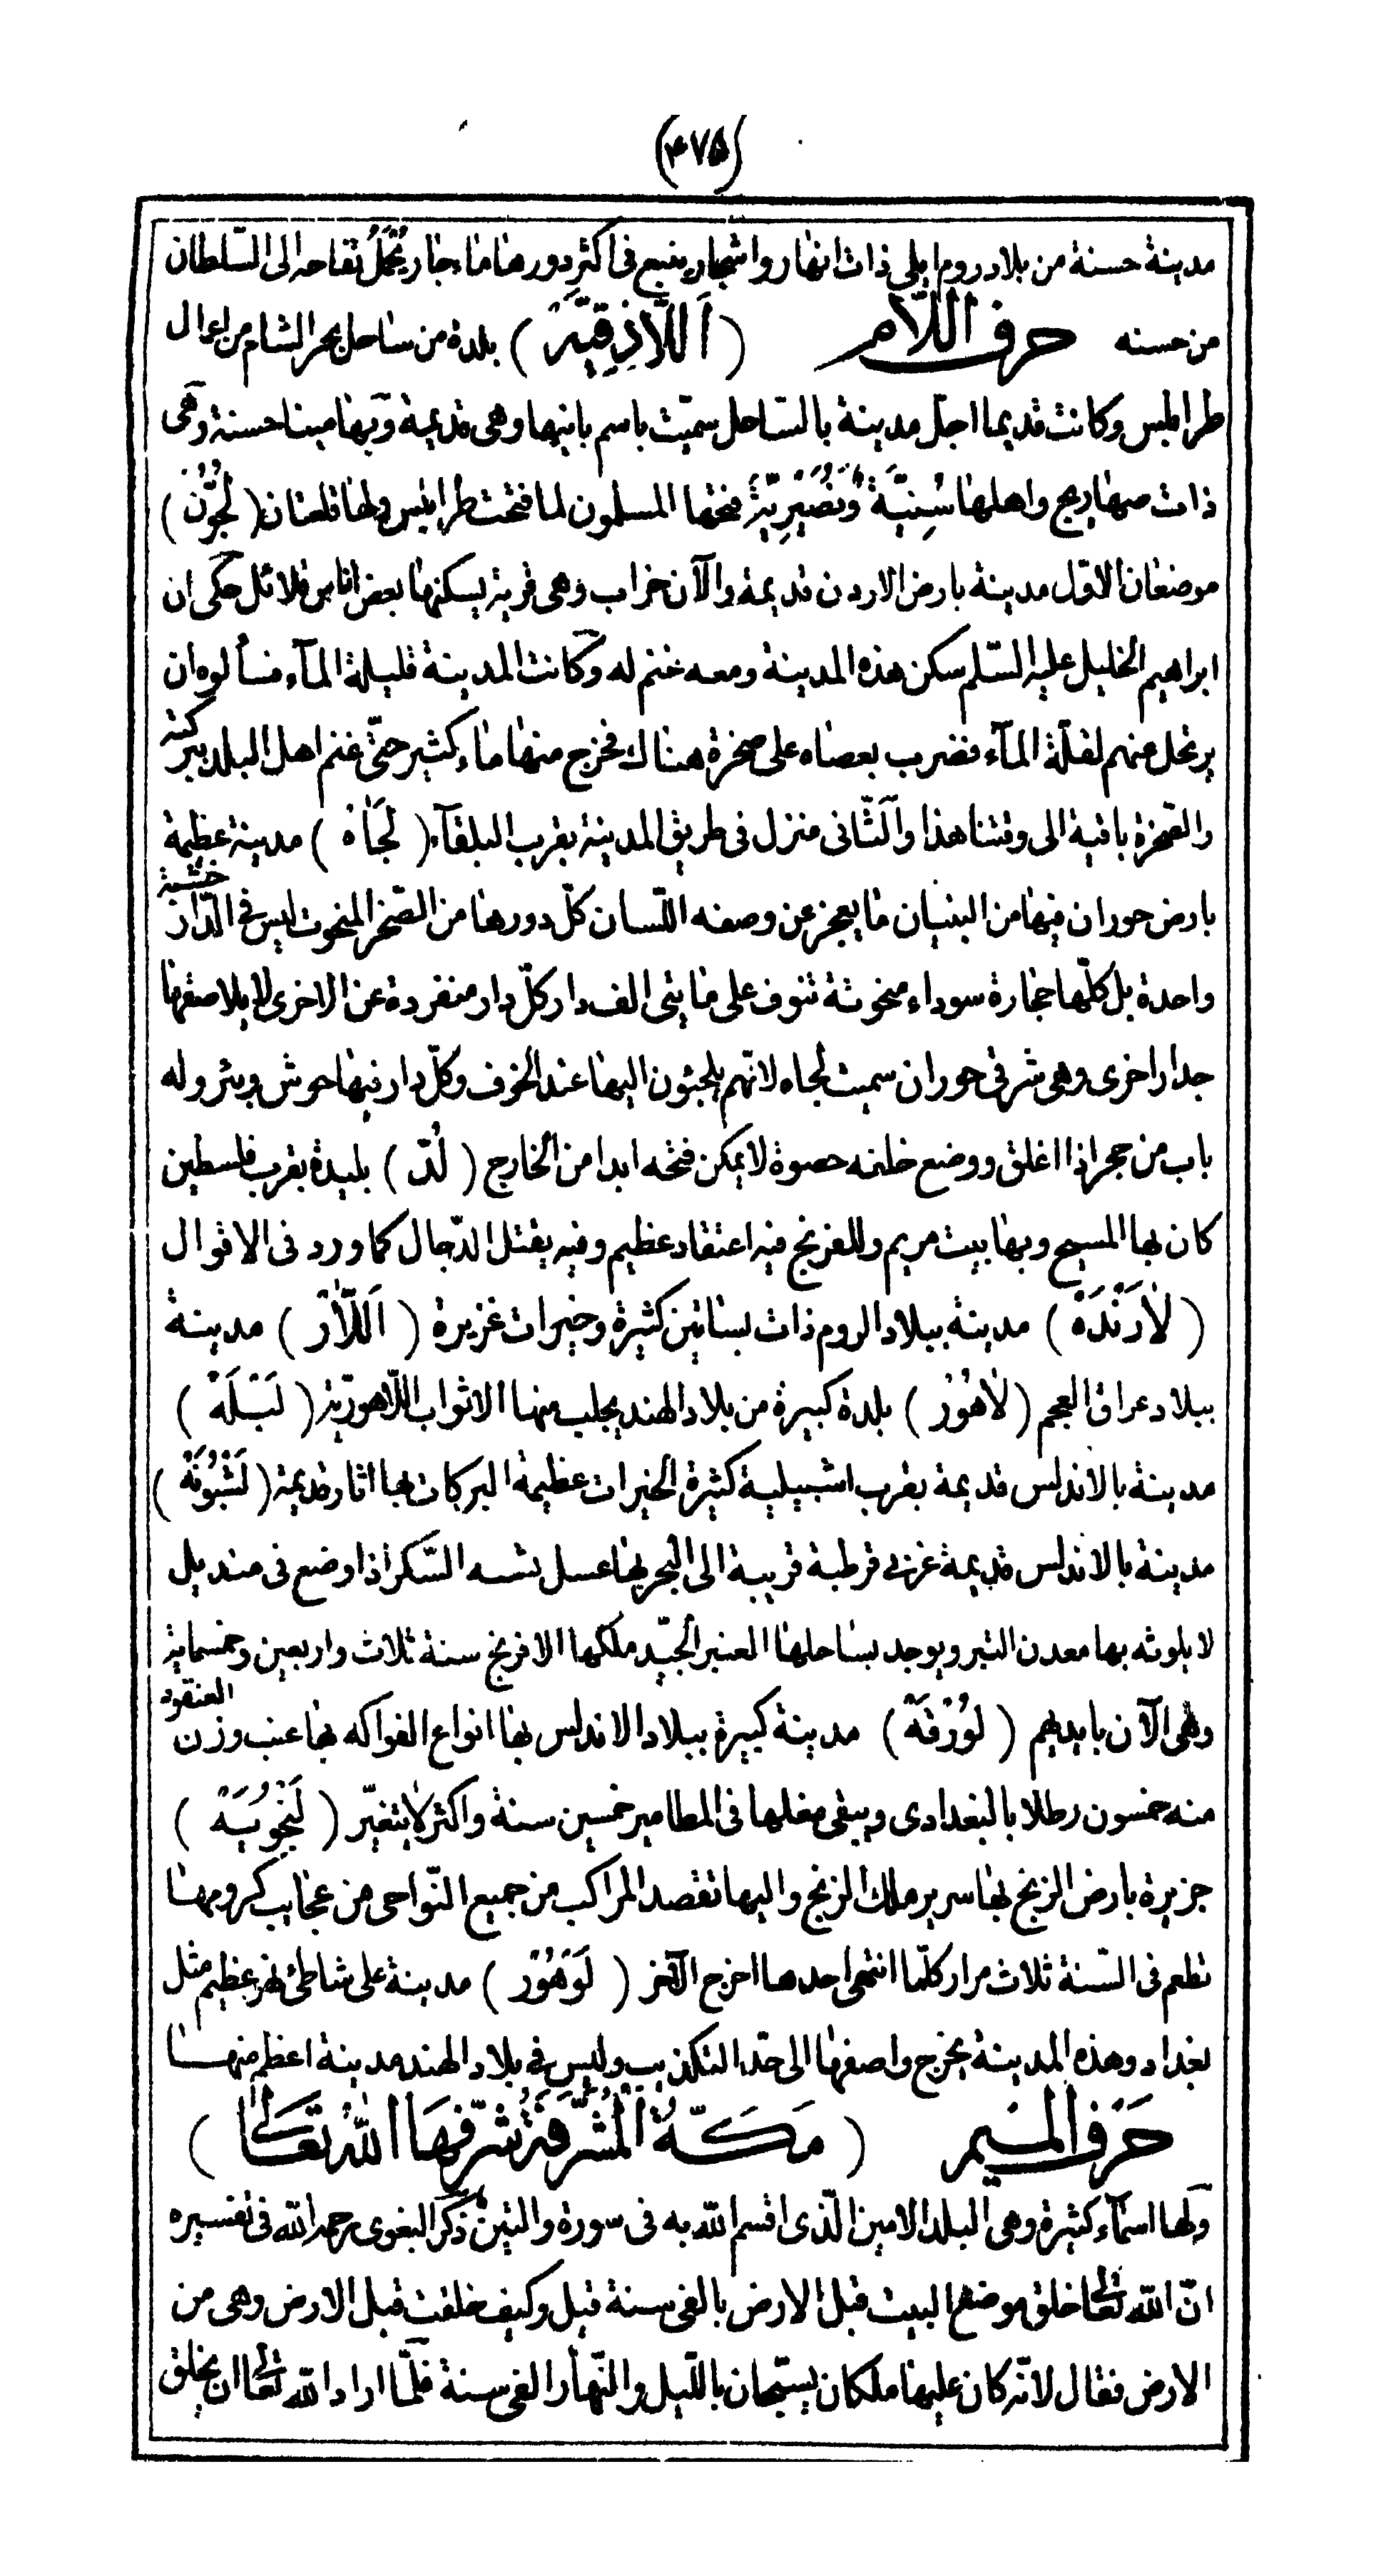 (۴۷۵)
مدينة حسنة من بلاد روم ايلى ذات انهار واشجار ينبع فى اكثر دورها ماء جار يُحْمَلُ تفاحه الى السّلطان
من حسنه حرف اللّام (اَللَّاذِقِيَّة) بلدة من ساحل بحر الشام من اعمال
طرابلس وكانت قديما اجلّ مدينة بالسّاحل سمّيت باسم بانيها وهى قديمة وبها مينا حسنة وهى
ذات صهاريج واهلها سُنِيَّة وَنُصَيْرِيَّة فتحها المسلمون لما فتحت طرابلس ولها قلعتان (لَجُّون)
موضعان الاوّل مدينة بارض الاردن قديمة والآن خراب وهى قرية يسكنها بعض اناس قلائل حكى ان
ابراهيم الخليل عليه السّلم سكن هذه المدينة ومعه غنم له وكانت المدينة قليلة المآء فسألوه ان
يرتحل عنهم لقلّة المآء فضرب بعصاه على صخرة هناك فخرج منها ماء كثير حتّى غنم اهل البلد ببركته
والصّخرة باقية الى وقتنا هذا والثّانى منزل فى طريق المدينة بقرب البلقآء (لَجَاهْ) مدينة عظيمة
بارض حوران فيها من البنيان ما يعجز عن وصفه اللّسان كلّ دورها من الصّخر المنحوت ليس فى الدّار خشبة
واحدة بل كلّها حجارة سوداء منحوتة تنوف على مايتى الف دار كلّ دار منفردة عن الاخرى لا يلاصقها
جدار اخرى وهى شرقى حوران سميت لجاه لانّهم يلجئون اليها عند الخوف وكلّ دار فيها حوش وبئر وله
باب من حجر اذا اغلق ووضع خلفه حصوة لا يمكن فتحه ابدا من الخارج (لُدّ) بليدة بقرب فلسطين
كان بها المسيح وبها بيت مريم وللفرنج فيه اعتقاد عظيم وفيه يقتل الدّجال كما ورد فى الاقوال
(لَارَنْدَه) مدينة ببلاد الروم ذات بساتين كثيرة وخيرات غزيرة (اَللَّارْ) مدينة
ببلاد عراق العجم (لَاهُوْر) بلدة كبيرة من بلاد الهند يجلب منها الاثواب اللّاهوريّة (لَبْلَة)
مدينة بالاندلس قديمة بقرب اشبيلية كثيرة الخيرات عظيمة البركات بها اثار قديمة (لَشْبُونَة)
مدينة بالاندلس قديمة غربى قرطبة قريبة الى البحر بها عسل يشبه السّكر اذا وضع فى منديل
لا يلوثه بها معدن التبر ويوجد بساحلها العنبر الجيّد ملكها الافرنج سنة ثلاث واربعين وخمسماية
وهى الآن بايديهم (لُوْرْقَة) مدينة كبيرة ببلاد الاندلس بها انواع الفواكه بها عنب وزن العنقود
منه خمسون رطلا بالبغدادى ويبقى مغلها فى المطامير خمسين سنة واكثر لا يتغيّر (لَنْجُوْيَة)
جزيرة بارض الزنج بها سرير ملك الزنج واليها تقصد المراكب من جميع النّواحى من عجايب كرومها
تطعم فى السّنة ثلاث مرار كلّما انتهى احدها اخرج الآخر (لَوَهُوْر) مدينة على شاطئ نهر عظيم مثل
بغداد وهذه المدينة يخرج واصفها الى حدّ التكذيب وليس فى بلاد الهند مدينة اعظم منها
حَرف الميم (مَكَّةُ الْمُشَرَّفَةُ شَرَّفَهَا اللهُ تَعَالَى)
ولها اسمآء كثيرة وهى البلد الامين الّذى اقسم الله به فى سورة والتين ذكر البغوى رحمه الله فى تفسيره
انّ الله تعالى خلق موضع البيت قبل الارض بالفى سنة قيل وكيف خلقت قبل الارض وهى من
الارض فقال لانّه كان عليها ملكان يسبّحان باللّيل والنّهار الفى سنة فلمّا اراد الله تعالى ان يخلق